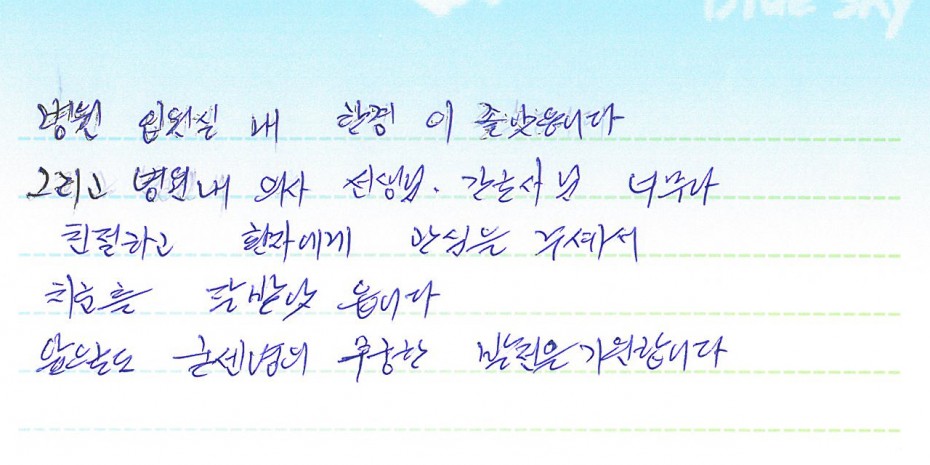 Blue Sky
병원 입원실 내 환경 이 졸았읍니다
그리고 병원내 의사 선생님. 간골사 님 너무나
친절하고 환자에게 관심은 주셔서
치료를 잘받았 읍니다
앞으로도 굳센병의 무궁한 발전은 기원합니다